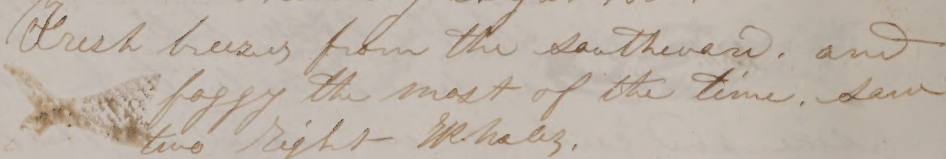 Fresh breezes from the southward. and
foggy the most of the time. saw
two right Whales.